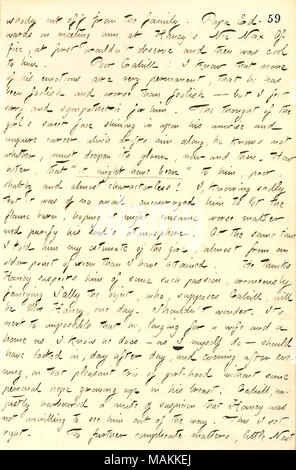 59
wholly cut off from the family. Papa Ed-
wards on meeting him at Haney's Nic Nax Of-
fice, at first wouldn't observe and then was cool
to him. Poor Cahill! I know that none
of his emotions are very permanent, that he has
been foolish and worse than foolish — but I feel
sorry and sympathetic for him. The thought of the
girl's sweet face shining in upon his unwise and
impure career which drifts him along, he knows not
whither, must deepen its gloom now and then. How
bitter, that "it might have been" to him, poor
shabby and almost characterless! I, knowing sadly
that it was of no avail, encouraged him to let the
flame burn, hoping it might consume worse matter
and purify his atmosphere. At the same time
I told him my estimate of the girl, almost from an
older point of view than I have attained. He thinks
Haney suspects him of some such passion, erroneously
fancying Sally the object, who, supposes Cahill, will
be Mrs Haney one day. Shouldn't wonder. It's
next to impossible that he, longing for a wife and a
home as I know he does — as I myself do — should
have looked in, day after day, and evening after eve-
ning, on that pleasant trio of girl-hood without some
personal hope growing up in his breast. Cahill, un-
justly harbored a mite of suspicion that Haney was
not unwilling to see him out of the way. This I set
right. To further complicate matters, little Nast
alamy
MAKKEJ